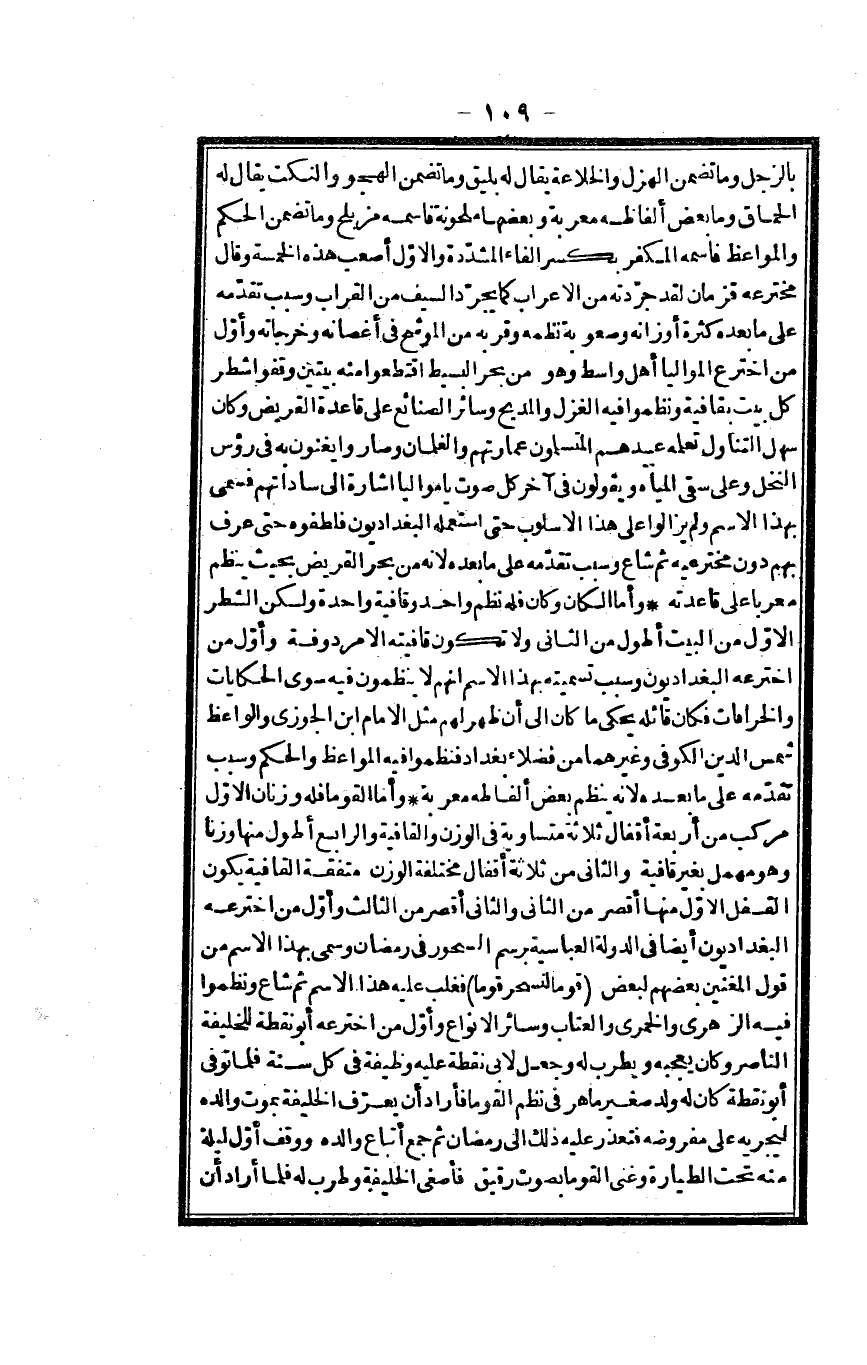 - ١٠٩ -
بالزجل وما تضمن الهزل والخلاعة يقال له بليق وما تضمن الهجو والنكت يقال له
الحماق وما بعض ألفاظه معربة وبعضها ملحونة فاسمه مزيلج وما تضمن الحكم
والمواعظ فاسمه المكفر بكسر الفاء المشددة والاوّل أصعب هذه الخمسة وقال
مخترعه قزمان لقد جرّدته من الاعراب كما يجرّد السيف من القراب وسبب تقدّمه
على ما بعده كثرة أوزانه وصعوبة نظمه وقربه من الموشح فى أغصانه وخرجاته وأوّل
من اخترع المواليا أهل واسط وهو من بحر البسيط اقتطعوا منه بيتين وقفوا شطر
كل بيت بقافية ونظموا فيه الغزل والمديح وسائر الصنائع على قاعدة القريض وكان
سهل التناول تعلمه عبيدهم المتسلون عمارتهم والغلمان وصاروا يغنون به فى رؤس
النخل وعلى سقى المياه ويقولون فى آخر كل صوت يا مواليا اشارة الى ساداتهم فسمى
بهذا الاسم ولم يزالوا على هذا الاسلوب حتى استعمله البغداديون فلطفوه حتى عرف
بهم دون مخترعيه ثم شاع وسبب تقدّمه على ما بعده لانه من بحر القريض بحيث ينظم
معربا على قاعدته * وأما الكان وكان فله نظم واحد وقافية واحدة ولكن الشطر
الاوّل من البيت أطول من الثانى ولا تكون قافيته الا مردوفة وأوّل من
اخترعه البغداديون وسبب تسميته بهذا الاسم انهم لا ينظمون فيه سوى الحكايات
والخرافات فكان قائله يحكى ما كان الى أن ظهر لهم مثل الامام ابن الجوزى والواعظ
شمس الدين الكوفى وغيرهما من فضلاء بغداد فنظموا فيه المواعظ والحكم وسبب
تقدّمه على ما بعده لانه ينظم بعض ألفاظه معربة * وأما القوما فله وزنان الاوّل
مركب من أربعة أقفال ثلاثة متساوية فى الوزن والقافية والرابع أطول منها وزنا
وهو مهمل بغير قافية والثانى من ثلاثة أقفال مختلفة الوزن متفقة القافية يكون
القفل الاوّل منها أقصر من الثانى والثانى أقصر من الثالث وأوّل من اخترعه
البغداديون أيضا فى الدولة العباسية برسم السحور فى رمضان وسمى بهذا الاسم من
قول المغنين بعضهم لبعض (قوما لنسحر قوما) فغلب عليه هذا الاسم ثم شاع ونظموا
فيه الزهرى والخمرى والعتاب وسائر الانواع وأوّل من اخترعه أبو نقطة للخليفة
الناصر وكان يعجبه ويطرب له وجعل لابى نقطة عليه وظيفة فى كل سنة فلما توفى
أبو نقطة كان له ولد صغير ماهر فى نظم القوما فأراد أن يعرّف الخليفة بموت والده
ليجريه على مفروضه فتعذر عليه ذلك الى رمضان ثم جمع أتباع والده ووقف أوّل ليلة
منه تحت الطيارة وغنى القوما بصوت رقيق فأصغى الخليفة وطرب له فلما أراد أن